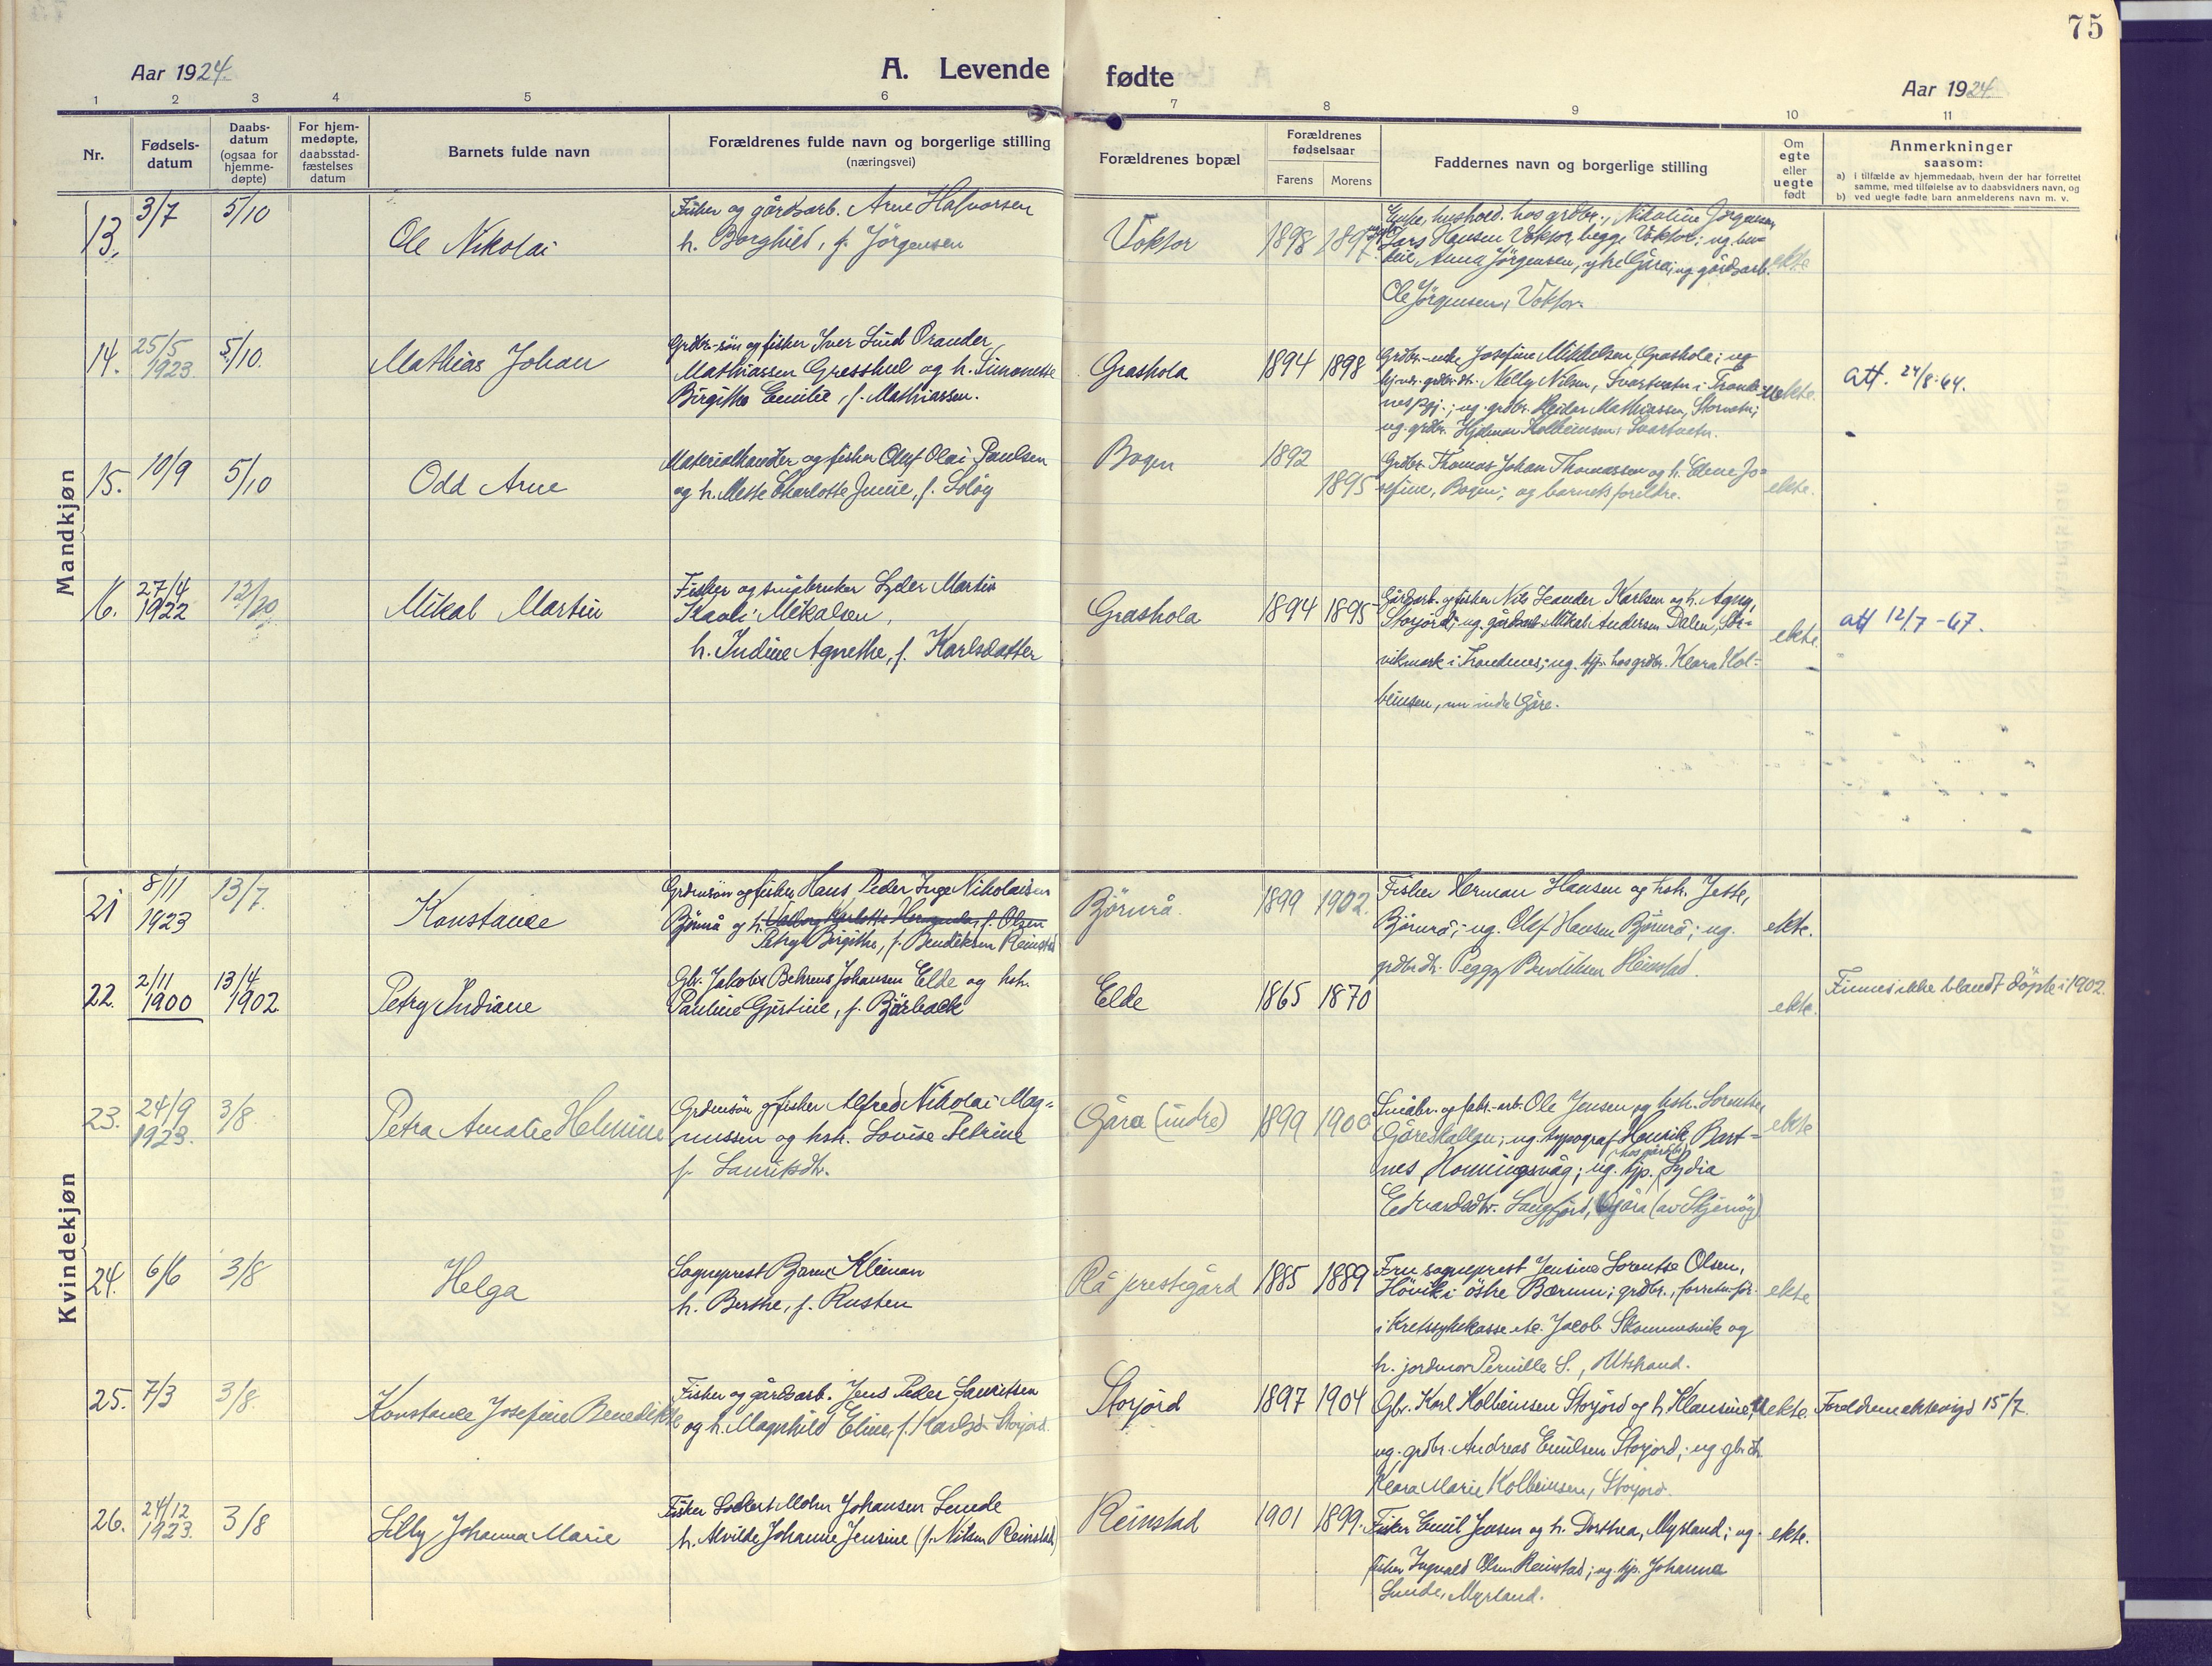 75
Aar 1924.
A. Levende fødte
Aar 1924.
1 2 3 4 5 6 7 8 9 10 11
Nr.
Fødsels-
datum
Daabs-
datum
(ogsaa for
hjemme-
døpte)
For hjem-
medøpte,
daabsstad-
fæstelses
datum
Barnets fulde navn
Forældrenes fulde navn og borgerlige stilling
(næringsvei)
Forældrenes bopæl
Forældrenes
fødselsaar
Farens Morens
Faddernes navn og borgerlige stilling
Om
egte
eller
uegte
født
Anmerkninger
saasom:
a) i tilfælde av hjemmedaab, hvem der har forrettet
samme, med tilføielse av to daabsvidners navn, og
b) ved uegte fødte barn anmelderens navn m. v.
Mandkjøn
13. 3/7 5/10
Ole Nikolai
Fisker og gårdsarb. Arne Halvorsen
h. Borghild, f. Jörgensen
Voktor 1898 1897
Enke, hushold. hos grdbr., Nikoline Jörgensen
Lars Hansen Voktor, begge Voktor; ug.
Anna Jörgensen, ytre Gåra; ug gårdsarb.
Ole Jörgensen, Voktor.
ekte
14. 25/5 1923. 5/10.
Mathias Johan
Grdbr.-sön og fisker Iver Lind Orander
Mathiassen Gresshul og h. Simonette
Birgithe Emilie, f. Mathiassen.
Grashola 1894 1898
Grdbr.-enke Josefine Mikkelsen, Grashola; ug
grdbr. dtr. Nelly Nilsen, Svartvatn i Tronde-
nes pgj.; ug. grdbr. Reidar Mathiassen, Storvatn;
ug. grdbr. Hjalmar Kolbeinsen, Svartvatn.
uekte.
att. 24/8-64.
15. 10/9 5/10
Odd Arne
Materialhandler og fisker Oluf Olai Paulsen
og h. Mette Charlotte Junie, f. Solöy
Bogen 1892 1895
Grdbr. Thomas Johan Thomassen og h. Elene Jo-
sefine, Bogen; og barnets foreldre.
ekte.
16. 27/4 1922 12/10
Mikal Martin
Fisker og småbruker Peder Martin
Kaali Mikalsen,
h. Indine Agnethe, f. Karlsdatter
Grashola 1894 1895
Gårdsarb. og fisker Nils Leander Karlsen og h. Agny,
Storjord; ug. gårdsarb. Mikal Andersen Dalen, Stor-
vikmark i Trondenes; ug. tjp. hos grdbr. Klara Kol-
beinsen, nu indre Gåre.
ekte.
att 12/7-67.
Kvindekjøn
21 8/11 1923 13/7.
Konstance
Grdmsön og fisker Hans Peder Inge Nikolaisen
Björnrå og h. Valborg Karlotte Hermanda, f. Olsen
Petry Birgithe, f. Bendiksen Reinstad
Björnrå. 1899 1902.
Fisker Herman Hansen og hstr. Jette,
Björnrå; ug. Olaf Hansen Björnrå; ug.
grdbr. dtr. Peggy Bendiksen Reinstad.
ekte.
22. 2/11 1900 13/4 1902.
Petry Indiane
Gbr. Jakobs Behrens Johansen Elde og hstr.
Pauline Gjertine, f. Bjärback
Elde 1865 1870
ekte.
Finnes ikke blandt döpte i 1902.
23. 24/9 1923. 3/8.
Petra Amalie Helmine
Grdmsön og fisker Alfred Nikolai Mag-
nussen og hstr. Lovise Petrine
f. Lauritsdtr.
Gåra (indre) 1899 1900
Småbr. og fabr.-arb. Ole Jensen og hstr. Lorentse,
Gåreshallen; ug. typograf Henrik Bart-
nes, Honningsvåg; ug. tjp. (hos gårdbr.) Lydia
Edvardsdtr. Langfjord, Gåra (av Skjervöy)
ekte
24. 6/6 3/8
Helga
Sogneprest Bjarne Kleivan
h. Berthe, f. Rusten
Rå prestegård 1885 1889
Fru sogneprest Jensine Lorentse Olsen,
Hövik i östre Bærum; grdbr., forretn.för.
i Kretssykekasse etc. Jacob Skommesvik og
h. jordmor Pernille S., Utstrand.
ekte
25. 7/3 3/8.
Konstance Josefine Benedikte
Fisker og gårdsarb. Jens Peder Lauritsen
og h. Magnhild Eline, f. Karlsd. Storjord.
Storjord 1897 1904
Gbr. Karl Kolbeinsen Storjord og h Klausine,
ug. grdbr. Andreas Emilsen Storjord; ug gbr. dtr.
Klara Marie Kolbeinsen, Storjord.
uekte.
Foreldrene ektevigd 15/7.
26. 24/12 1923. 3/8
Lilly Johanna Marie
Fisker Lockert Mohn Johansen Lunde
h. Alvilde Johanne Jensine (f. Nilsen Reinstad)
Reinstad 1901 1899.
Fisker Emil Jensen og h. Dorthea, Myrland; ug.
fisker Ingvald Olsen Reinstad; ug. tjp. Johanna
Lunde, Myrland.
ekte.